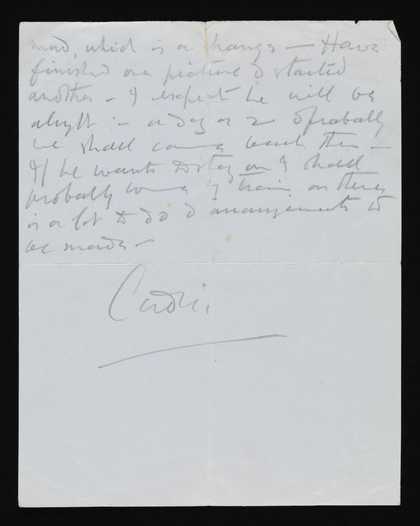 which is a change – Have
finished one picture & started
another – I expect he will be
alright in a day or 2 & probably
we shall come back then –
If he wants to stay on I shall
probably come by train, as there
is a lot to do & arrangements to
be made –
Cedric.